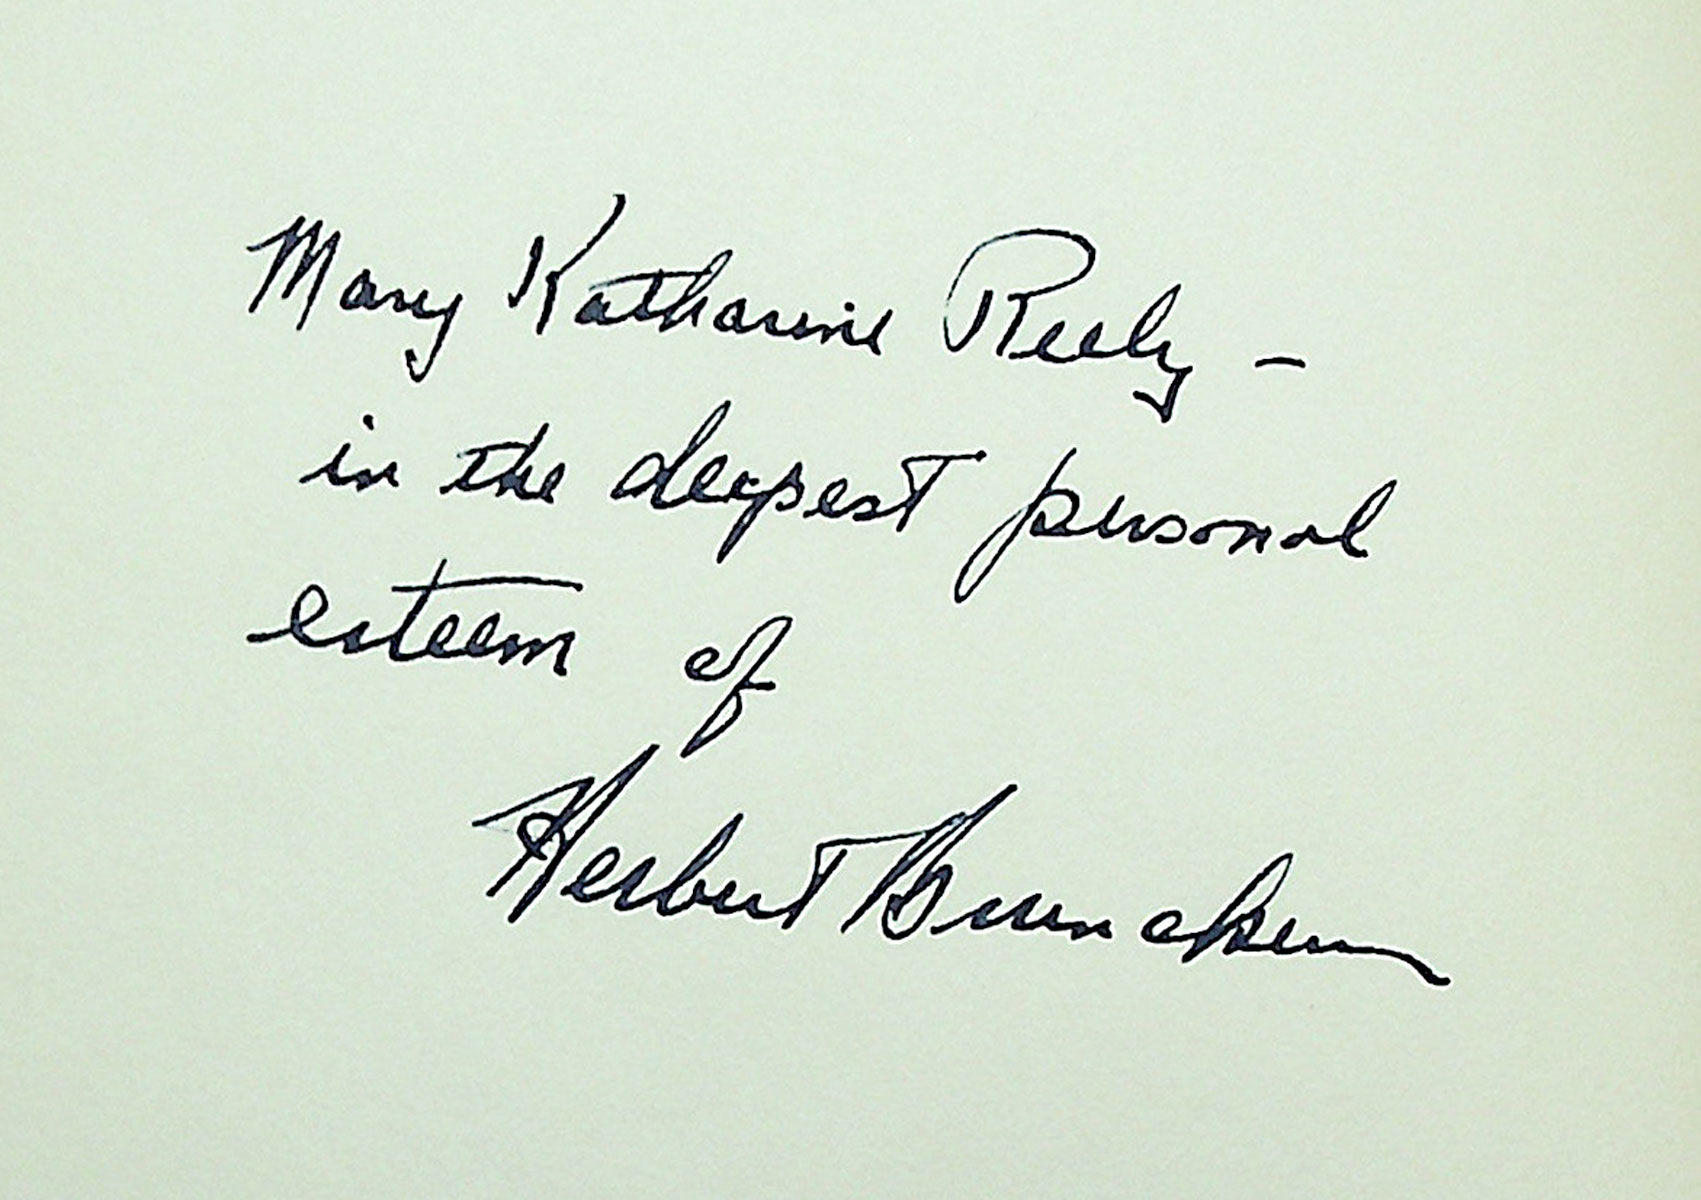 Mary Katharine Reely –
in the deepest personal
esteem of
Herbert Bruncken